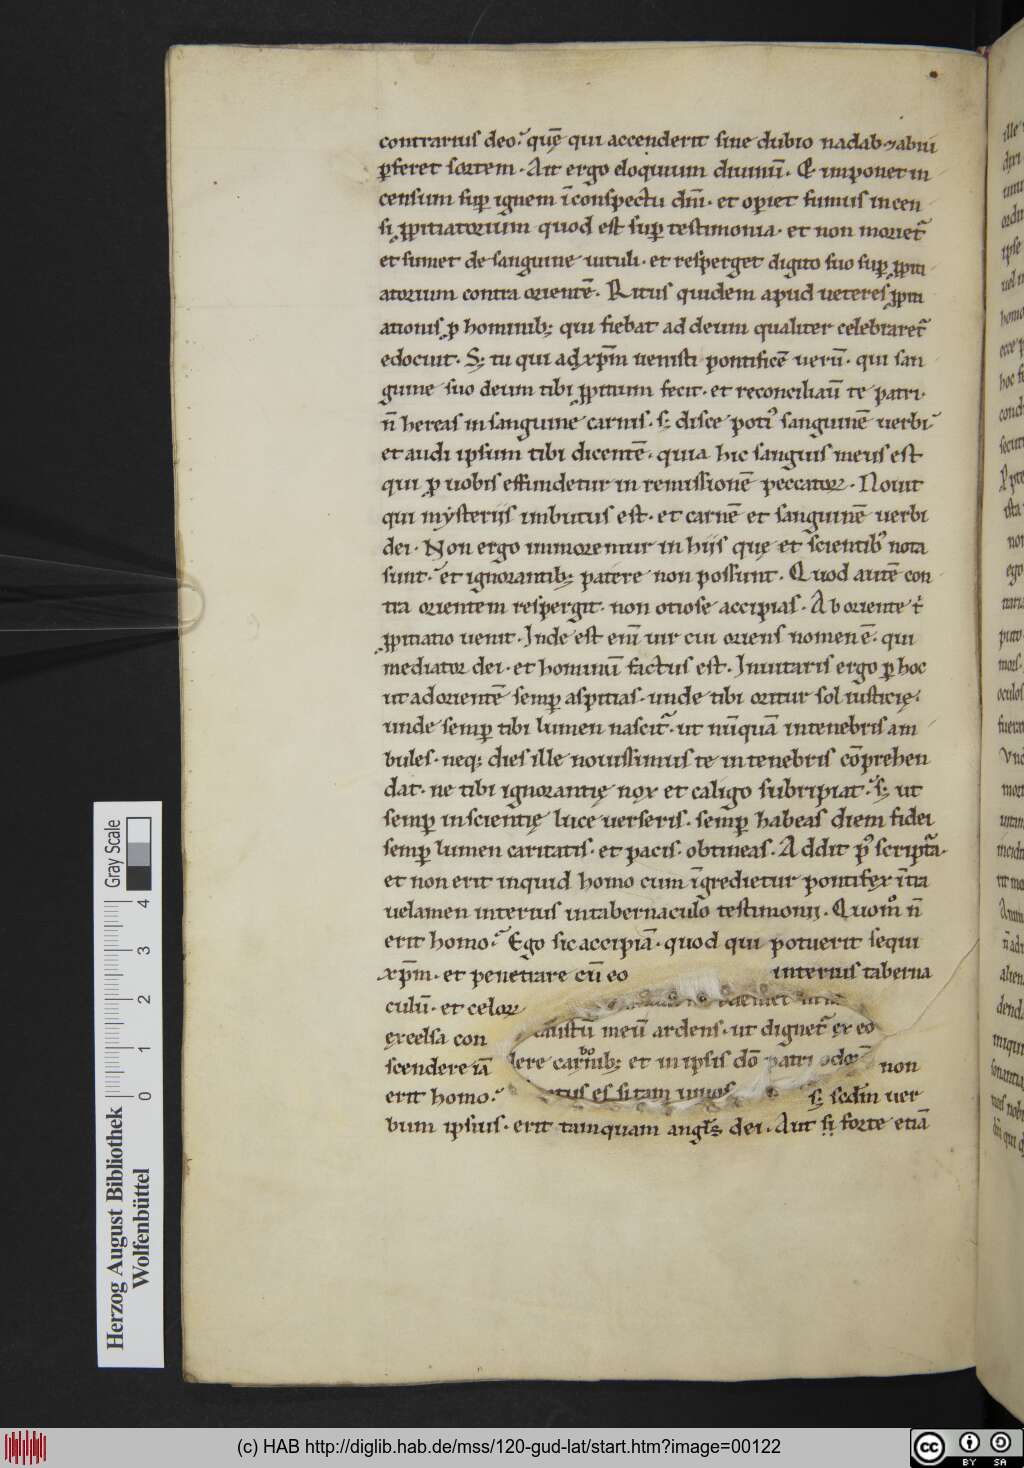 contrarius deo. quę qui accenderit sine dubio nadab ⁊ abiu
ꝑferet sortem. Ait ergo eloquium diuinū. Et imponet in
censum suꝑ ignem ī conspectu dn̄i. et operiet fumus incen
si ꝓpitiatorium quod est suꝑ testimonia. et non moriet᷑
et sumet de sanguine uituli. et resperget digito suo suꝑ ꝓpiti
atorium contra orientē. Ritus quidem apud ueteres ꝓpiti
ationis ꝓ hominib; qui fiebat ad deum qualiter celebraret᷑
edocuit. S; tu qui ad xp̄m uenisti pontificē uerū. qui san
guine suo deum tibi ꝓpitium fecit. et reconciliauit te patri.
n̄ hereas in sanguine carnis. s; disce poti᷒ sanguinē uerbi.
et audi ipsum tibi dicentē. quia hic sanguis meus est
qui ꝓ uobis effundetur in remissionē peccatoꝝ. Nouit
qui mysteriis imbutus est. et carnē et sanguinē uerbi
dei. Non ergo immoremur in hiis que et scientib᷒ nota
sunt. et ignorantib; patere non possunt. Quod autē con
tra orientem respergit. non otiose accipias. Ab oriente t̄
ꝓpitiatio uenit. Inde est eni᷒ uir cui oriens nomen ē. qui
mediator dei. et hominū factus est. Inuitaris ergo ꝑ hoc
ut ad orientē semꝑ aspitias. unde tibi oritur sol iusticię.
unde semꝑ tibi lumen nascit᷑. ut nūquā in tenebris am
bules. neq; dies ille nouissimus te in tenebris cōprehen
dat. ne tibi ignorantię nox et caligo subripiat. s; ut
semꝑ in scientię luce uerseris. semꝑ habeas diem fidei
semꝑ lumen caritatis. et pacis. obtineas. Addit ꝑ᷒ scriptᷓa.
et non erit inquid homo cum īgredietur pontifex ītra
uelamen interius in tabernaculo testimonii. Quom̊ n̄
erit homo. Ego sic accipiā. quod qui potuerit sequi
xp̄m. et penetrare cū eo interius taberna
culū. et celoꝝ
excelsa con austū meū ardens. ut dignet᷑ ex eo
scendere iā dere carbonib; et in ipsis dō patri odorē non
erit homo. s; sedm̄ uer
bum ipsius. erit tamquam angl̄s dei. Aut si forte etiā
Gray Scale
0 1 2 3 4
Herzog August Bibliothek
Wolfenbüttel
(c) HAB http://diglib.hab.de/mss/120-gud-lat/start.htm?image=00122
cc BY SA